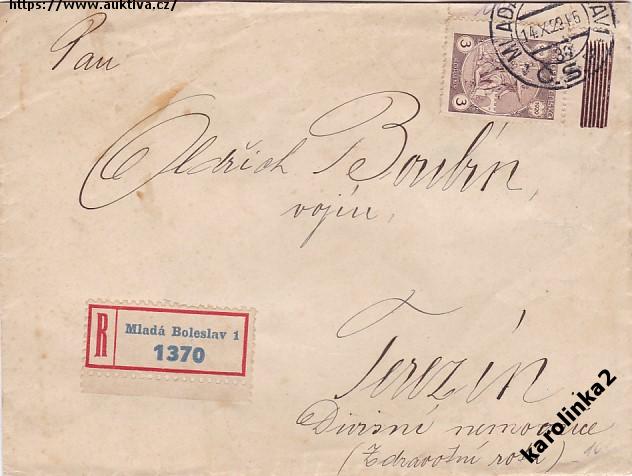 https://www.auktiva.cz/
Pan
3
3
14.X.29
Oldřich Boubín,
vojín,
R
Mladá Boleslav 1
1370
Terezín
Divisní nemocnice
(Zdravotní rota)
karolinka2